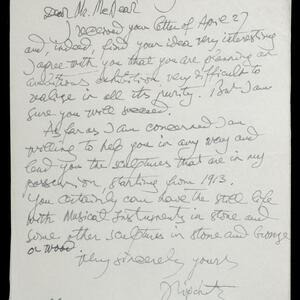 Dear Mr. McLeod
received your letter of April 27
and, indeed, find your idea very interesting
I agree with you that you are planning an
ambitious exhibition very difficult to
realize in all its purity. But I am
sure you will succeed.
As far as I am concerned I am
willing to help you in any way and
lend you the sculptures that are in my
possession, starting from 1913.
You certainly can have the Still life
with Musical Instruments in stone and
some other sculptures in stone and bronze
or wood.
Very sincerely yours
J Lipchitz